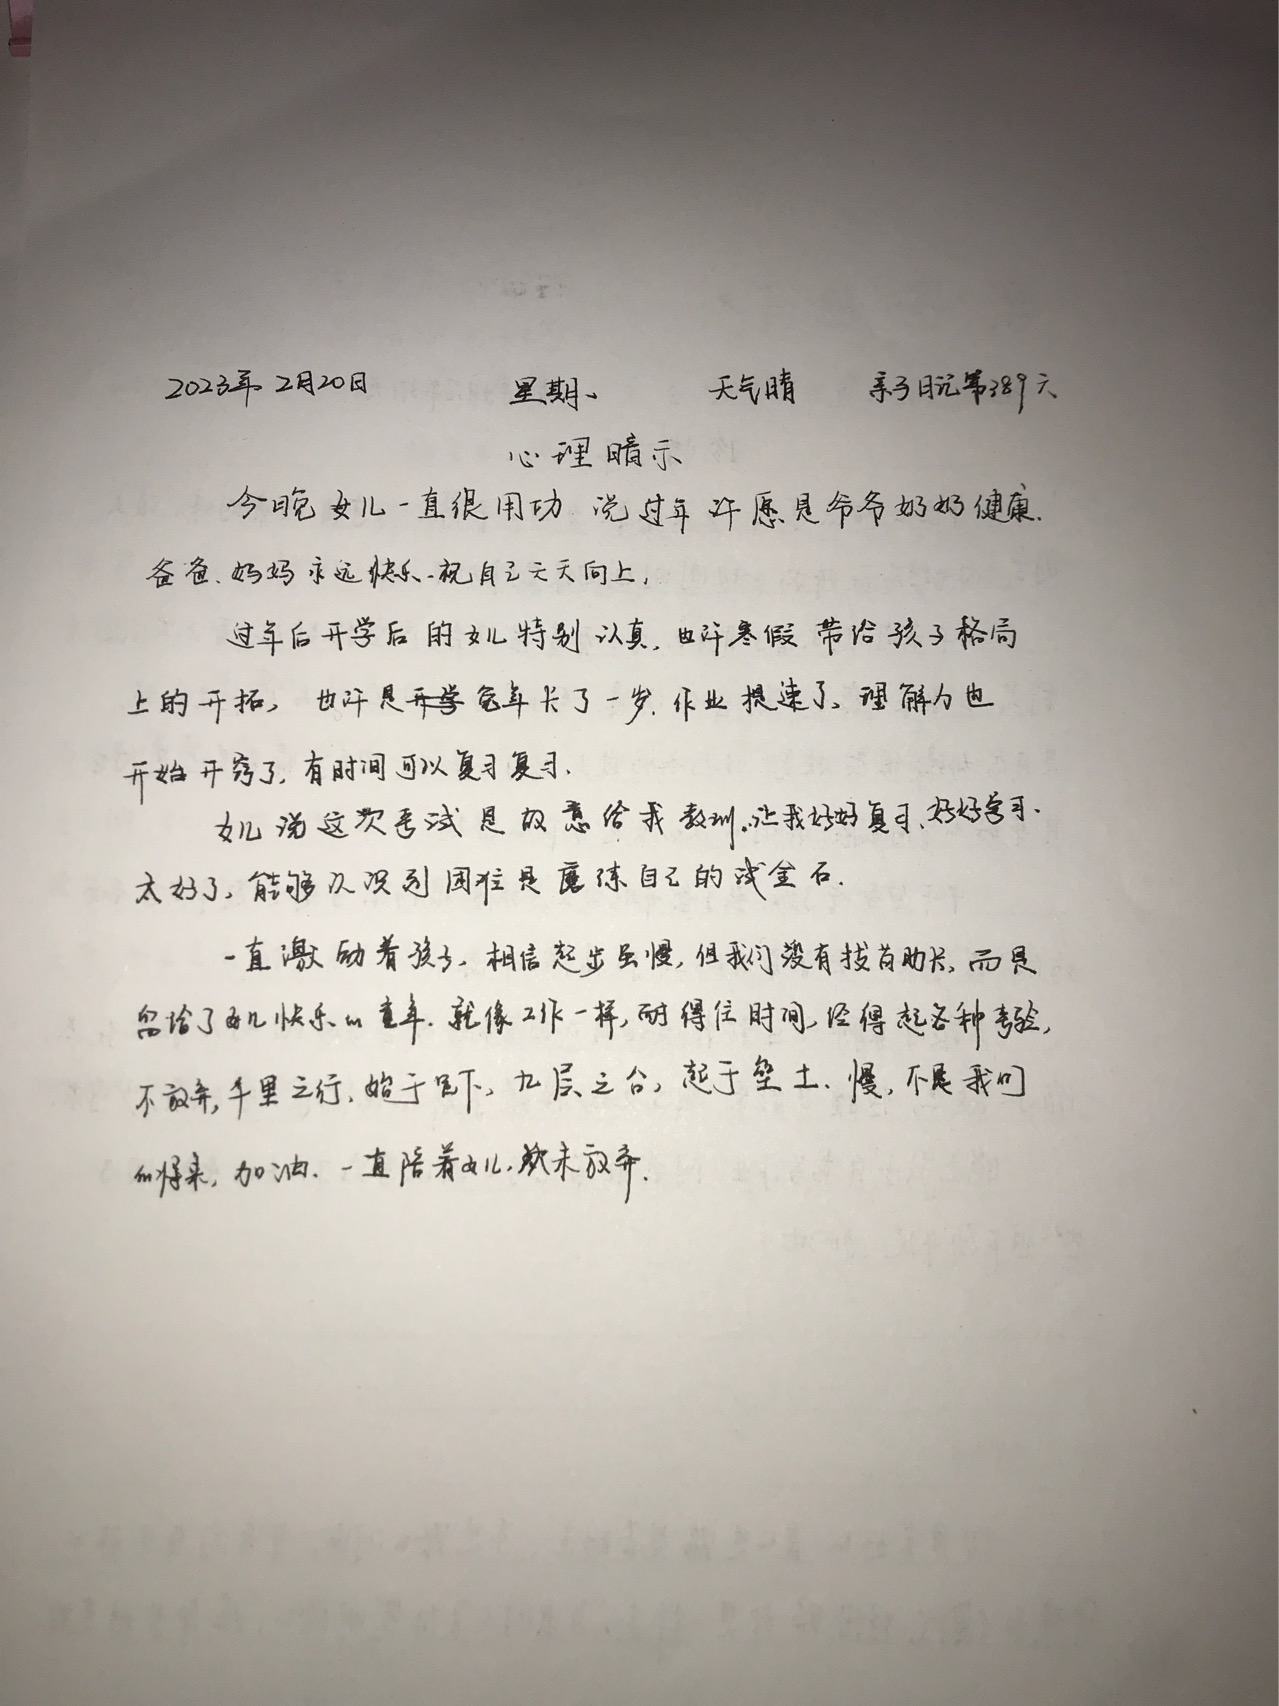 2023年2月20日 星期一 天气晴 亲子日记第389天
心理暗示
今晚女儿一直很用功 说过年许愿是爷爷奶奶健康.
爸爸、妈妈永远快乐.祝自己天天向上,
过年后开学后的女儿特别认真,也许寒假带给孩子格局
上的开拓,也许是开学兔年长了一岁.作业提速了,理解力也
开始开窍了,有时间可以复习复习.
女儿说这次考试是故意给我教训,让我好好复习、好好学习.
太好了,能够认识到困难是磨练自己的试金石.
一直激励着孩子,相信起步虽慢,但我们没有拔苗助长,而是
留给了女儿快乐的童年.就像工作一样,耐得住时间,经得起各种考验,
不放弃,千里之行,始于足下,九层之台,起于垒土.慢,不是我们
的将来,加油.一直陪着女儿,从未放弃.